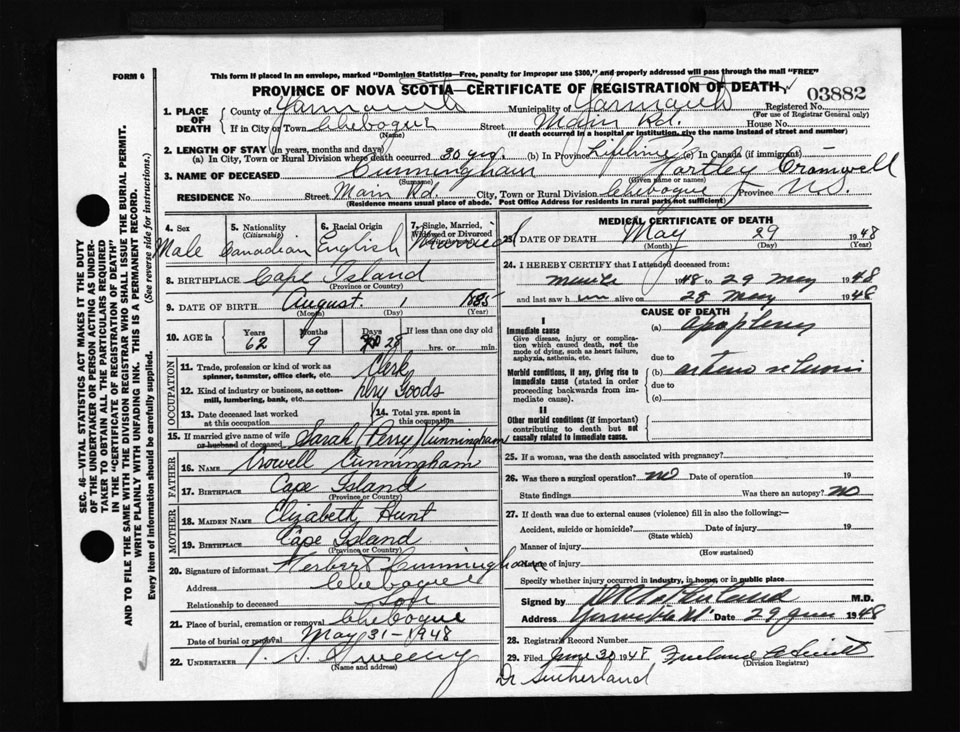 FORM 6
This form if placed in an envelope, marked "Dominion Statistics—Free, penalty for improper use $300," and properly addressed will pass through the mail "FREE"
PROVINCE OF NOVA SCOTIA—CERTIFICATE OF REGISTRATION OF DEATH
03882
1. PLACE OF DEATH County of Yarmouth Municipality of Yarmouth Registered No.
(For use of Registrar General only)
If in City or Town Chebogue Street Main Rd. House No.
(Name) (If death occurred in a hospital or institution, give the name instead of street and number)
2. LENGTH OF STAY (in years, months and days)
(a) In City, Town or Rural Division where death occurred 30 yrs. (b) In Province Lifetime (c) In Canada (if immigrant)
3. NAME OF DECEASED Cunningham Hartley Cromwell
(Surname) (Given name or names)
RESIDENCE No. Street Main Rd. City, Town or Rural Division Chebogue Province N.S.
(Residence means usual place of abode. Post Office Address for residents in rural parts not sufficient)
4. Sex Male
5. Nationality (Citizenship) Canadian
6. Racial Origin English
7. Single, Married, Widowed or Divorced Married
8. BIRTHPLACE Cape Island
(Province or Country)
9. DATE OF BIRTH August 1 1885
(Month) (Day) (Year)
10. AGE in Years Months Days If less than one day old
62 9 28 hrs. or min.
OCCUPATION
11. Trade, profession or kind of work as spinner, teamster, office clerk, etc. Clerk
12. Kind of industry or business, as cotton-mill, lumbering, bank, etc. Dry Goods
13. Date deceased last worked at this occupation
14. Total yrs. spent in this occupation
15. If married give name of wife or husband of deceased Sarah Perry Cunningham
FATHER
16. Name Crowell Cunningham
17. Birthplace Cape Island
(Province or Country)
MOTHER
18. Maiden Name Elizabeth Hunt
19. Birthplace Cape Island
(Province or Country)
20. Signature of informant Herbert Cunningham
Address Chebogue
Relationship to deceased Son
21. Place of burial, cremation or removal Chebogue
Date of burial or removal May 31-1948
22. UNDERTAKER V. S. Sweeny
(Name and address)
MEDICAL CERTIFICATE OF DEATH
23. DATE OF DEATH May 29 1948
(Month) (Day) (Year)
24. I HEREBY CERTIFY that I attended deceased from:
1948 to 29 May 1948
and last saw him alive on 28 May 1948
CAUSE OF DEATH
I
Immediate cause
Give disease, injury or complication which caused death, not the mode of dying, such as heart failure, asphyxia, asthenia, etc.
(a) apoplexy
due to
Morbid conditions, if any, giving rise to immediate cause (stated in order proceeding backwards from immediate cause).
(b)
due to
(c)
II
Other morbid conditions (if important) contributing to death but not causally related to immediate cause.
25. If a woman, was the death associated with pregnancy?
26. Was there a surgical operation? No Date of operation 19
State findings Was there an autopsy? No
27. If death was due to external causes (violence) fill in also the following:—
Accident, suicide or homicide? Date of injury 19
(State which)
Manner of injury
(How sustained)
Nature of injury
Specify whether injury occurred in industry, in home, or in public place
Signed by M.D.
Address Date 29 June 1948
28. Registrar's Record Number
29. Filed June 30 1948
(Division Registrar)
Dr Sutherland
SEC. 46—VITAL STATISTICS ACT MAKES IT THE DUTY
OF THE UNDERTAKER OR PERSON ACTING AS UNDER-
TAKER TO OBTAIN ALL THE PARTICULARS REQUIRED
IN THE "CERTIFICATE OF REGISTRATION OF DEATH"
AND TO FILE THE SAME WITH THE DIVISION REGISTRAR WHO SHALL ISSUE THE BURIAL PERMIT.
WRITE PLAINLY WITH UNFADING INK. THIS IS A PERMANENT RECORD.
Every item of information should be carefully supplied. (See reverse side for instructions.)